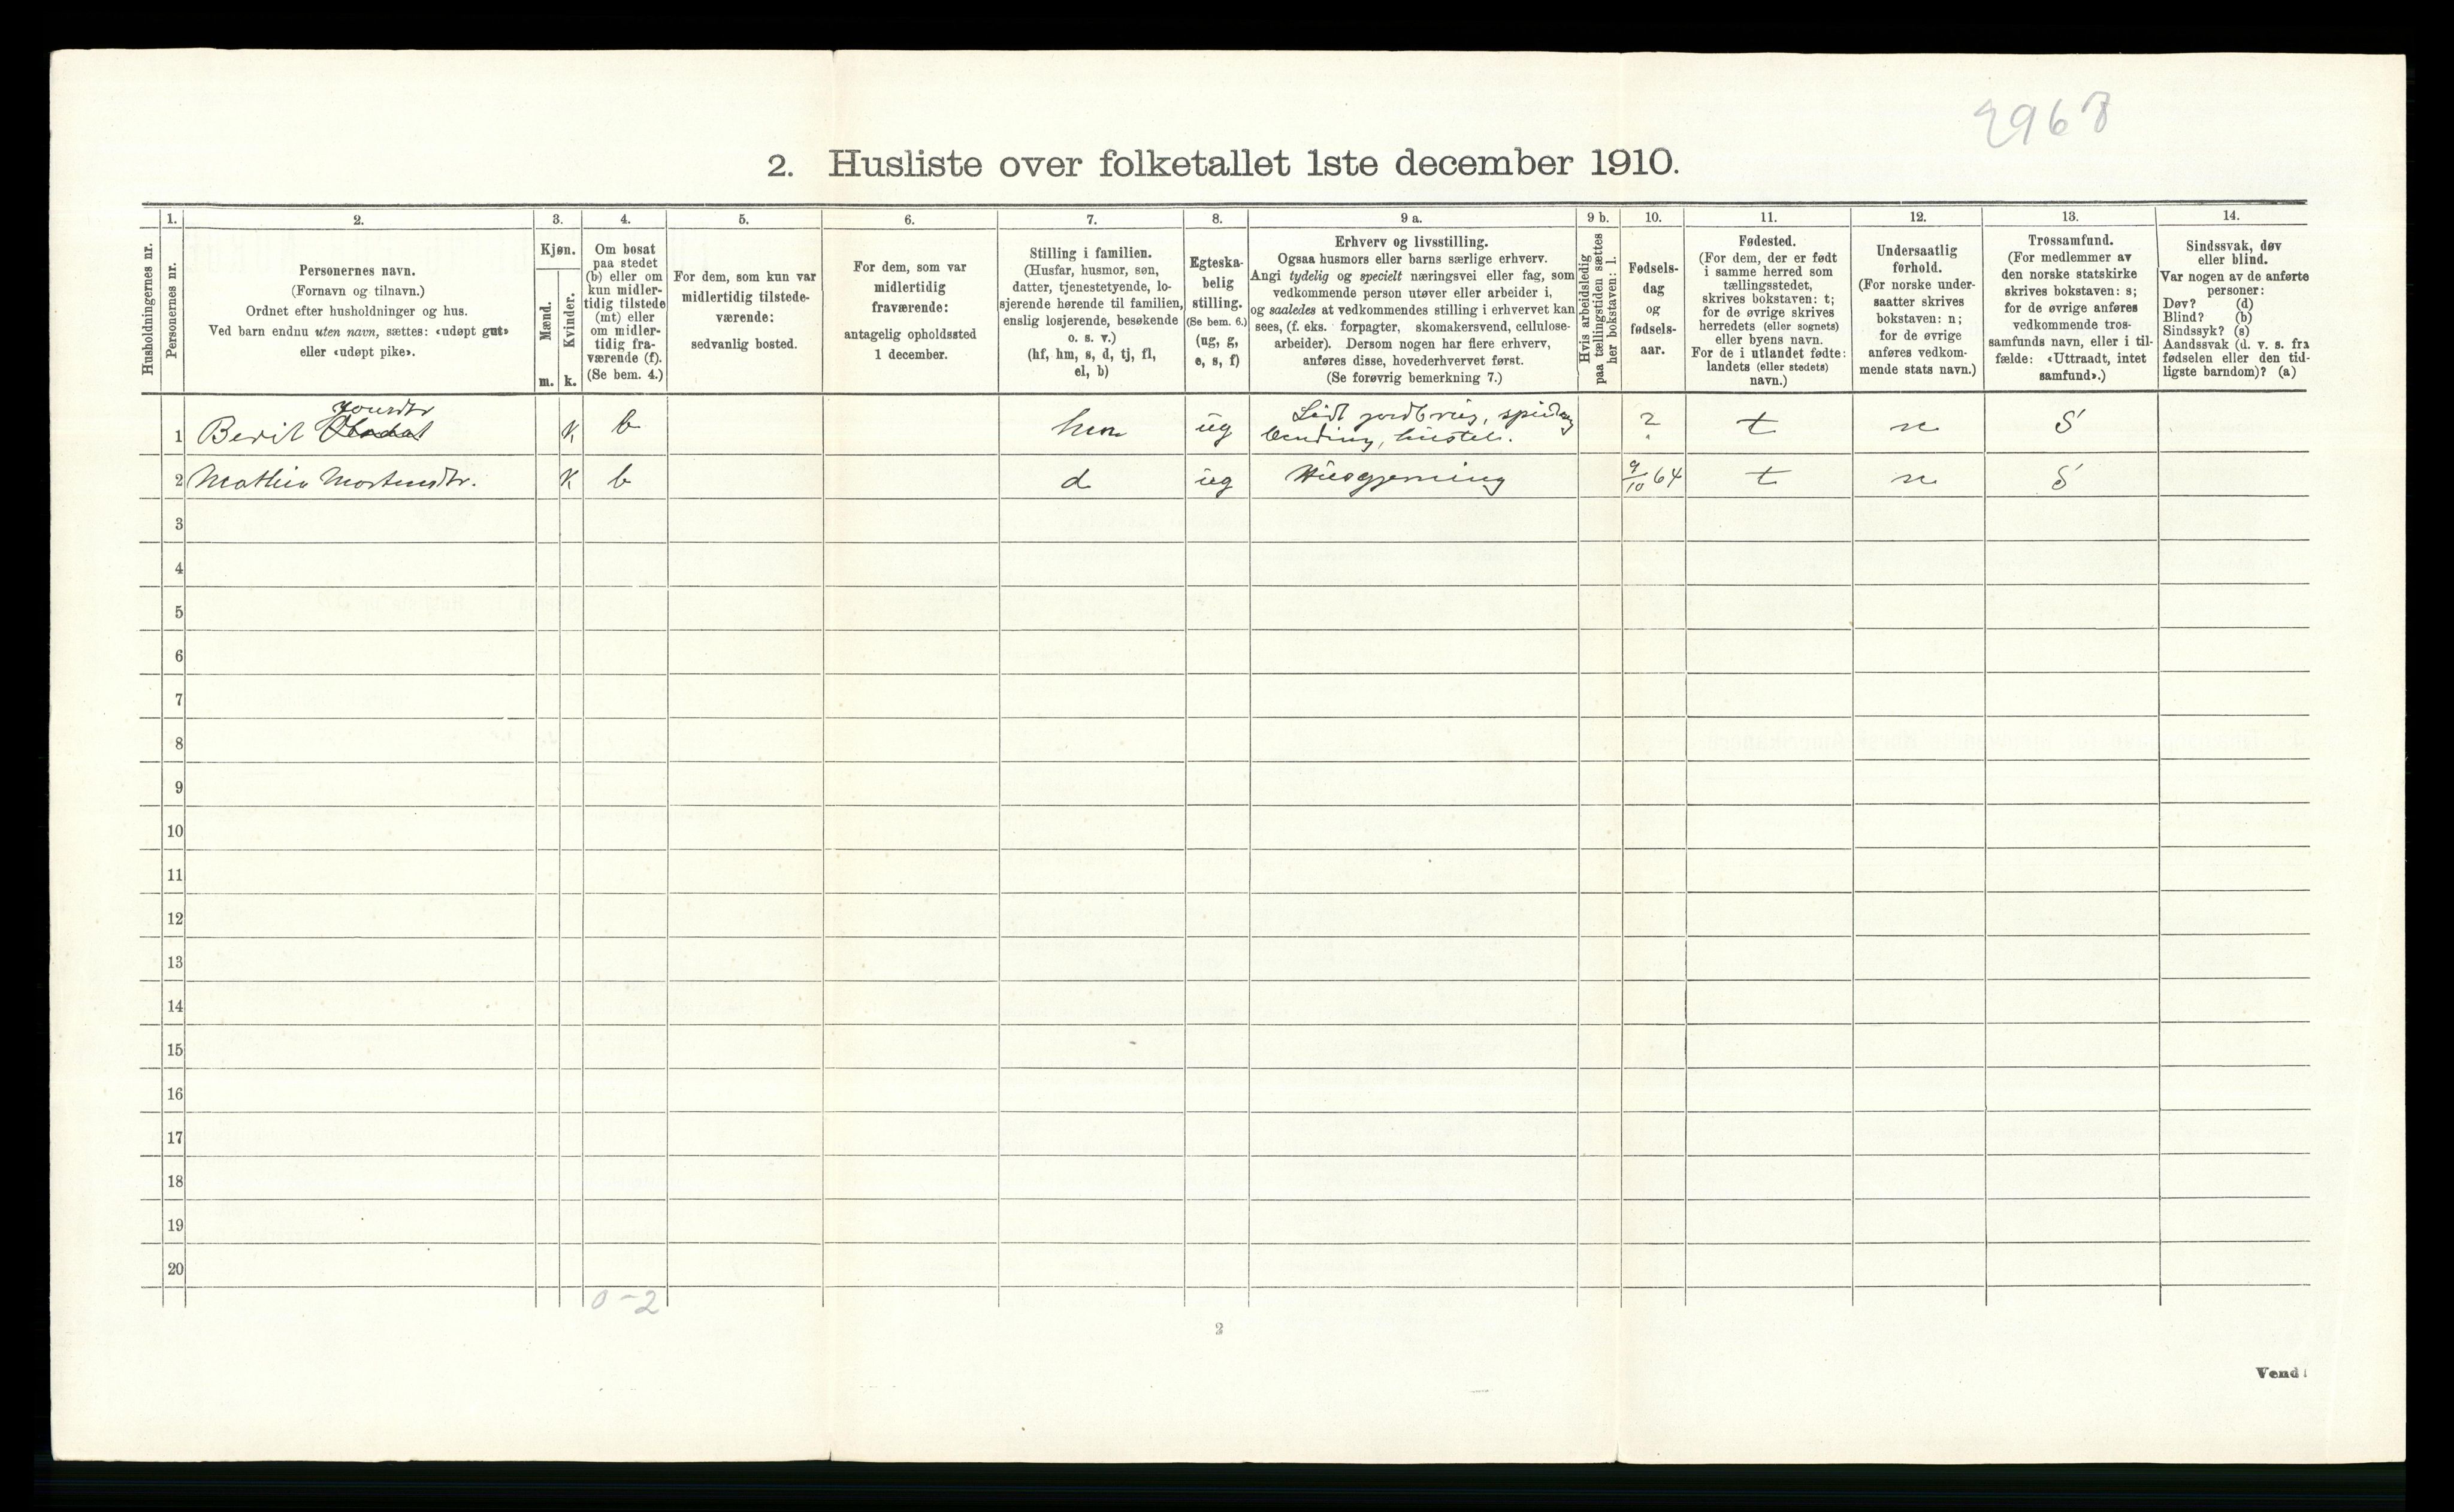 2968
2. Husliste over folketallet 1ste december 1910.
Husholdningernes nr.
1.
Personernes nr.
2.
Personernes navn.
(Fornavn og tilnavn.)
Ordnet efter husholdninger og hus.
Ved barn endnu uten navn, sættes: «udøpt gut»
eller «udøpt pike».
3.
Kjøn.
Mænd.
Kvinder.
m. k.
4.
Om bosat
paa stedet
(b) eller om
kun midler-
tidig tilstede
(mt) eller
om midler-
tidig fra-
værende (f).
(Se bem. 4.)
5.
For dem, som kun var
midlertidig tilstede-
værende:
sedvanlig bosted.
6.
For dem, som var
midlertidig
fraværende:
antagelig opholdssted
1 december.
7.
Stilling i familien.
(Husfar, husmor, søn,
datter, tjenestetyende, lo-
sjerende hørende til familien,
enslig losjerende, besøkende
o. s. v.)
(hf, hm, s, d, tj, fl,
el, b)
8.
Egteska-
belig
stilling.
(Se bem. 6.)
(ug, g,
e, s, f)
9 a.
Erhverv og livsstilling.
Ogsaa husmors eller barns særlige erhverv.
Angi tydelig og specielt næringsvei eller fag, som
vedkommende person utøver eller arbeider i,
og saaledes at vedkommendes stilling i erhvervet kan
sees, (f. eks. forpagter, skomakersvend, cellulose-
arbeider). Dersom nogen har flere erhverv,
anføres disse, hovederhvervet først.
(Se forøvrig bemerkning 7.)
9 b.
Hvis arbeidsledig
paa tællingstiden sættes
her bokstaven: l.
10.
Fødsels-
dag
og
fødsels-
aar.
11.
Fødested.
(For dem, der er født
i samme herred som
tællingsstedet,
skrives bokstaven: t;
for de øvrige skrives
herredets (eller sognets)
eller byens navn.
For de i utlandet fødte:
landets (eller stedets)
navn.)
12.
Undersaatlig
forhold.
(For norske under-
saatter skrives
bokstaven: n;
for de øvrige
anføres vedkom-
mende stats navn.)
13.
Trossamfund.
(For medlemmer av
den norske statskirke
skrives bokstaven: s;
for de øvrige anføres
vedkommende tros-
samfunds navn, eller i til-
fælde: «Uttraadt, intet
samfund».)
14.
Sindssvak, døv
eller blind.
Var nogen av de anførte
personer:
Døv? (d)
Blind? (b)
Sindssyk? (s)
Aandssvak (d. v. s. fra
fødselen eller den tid-
ligste barndom)? (a)
1 Berit K b hm ug ? t n S
2 Mathia Mortensdtr. K b d ug Husgjerning 9/10 64 t n S
3
4
5
6
7
8
9
10
11
12
13
14
15
16
17
18
19
20
0-2
2
Vend!